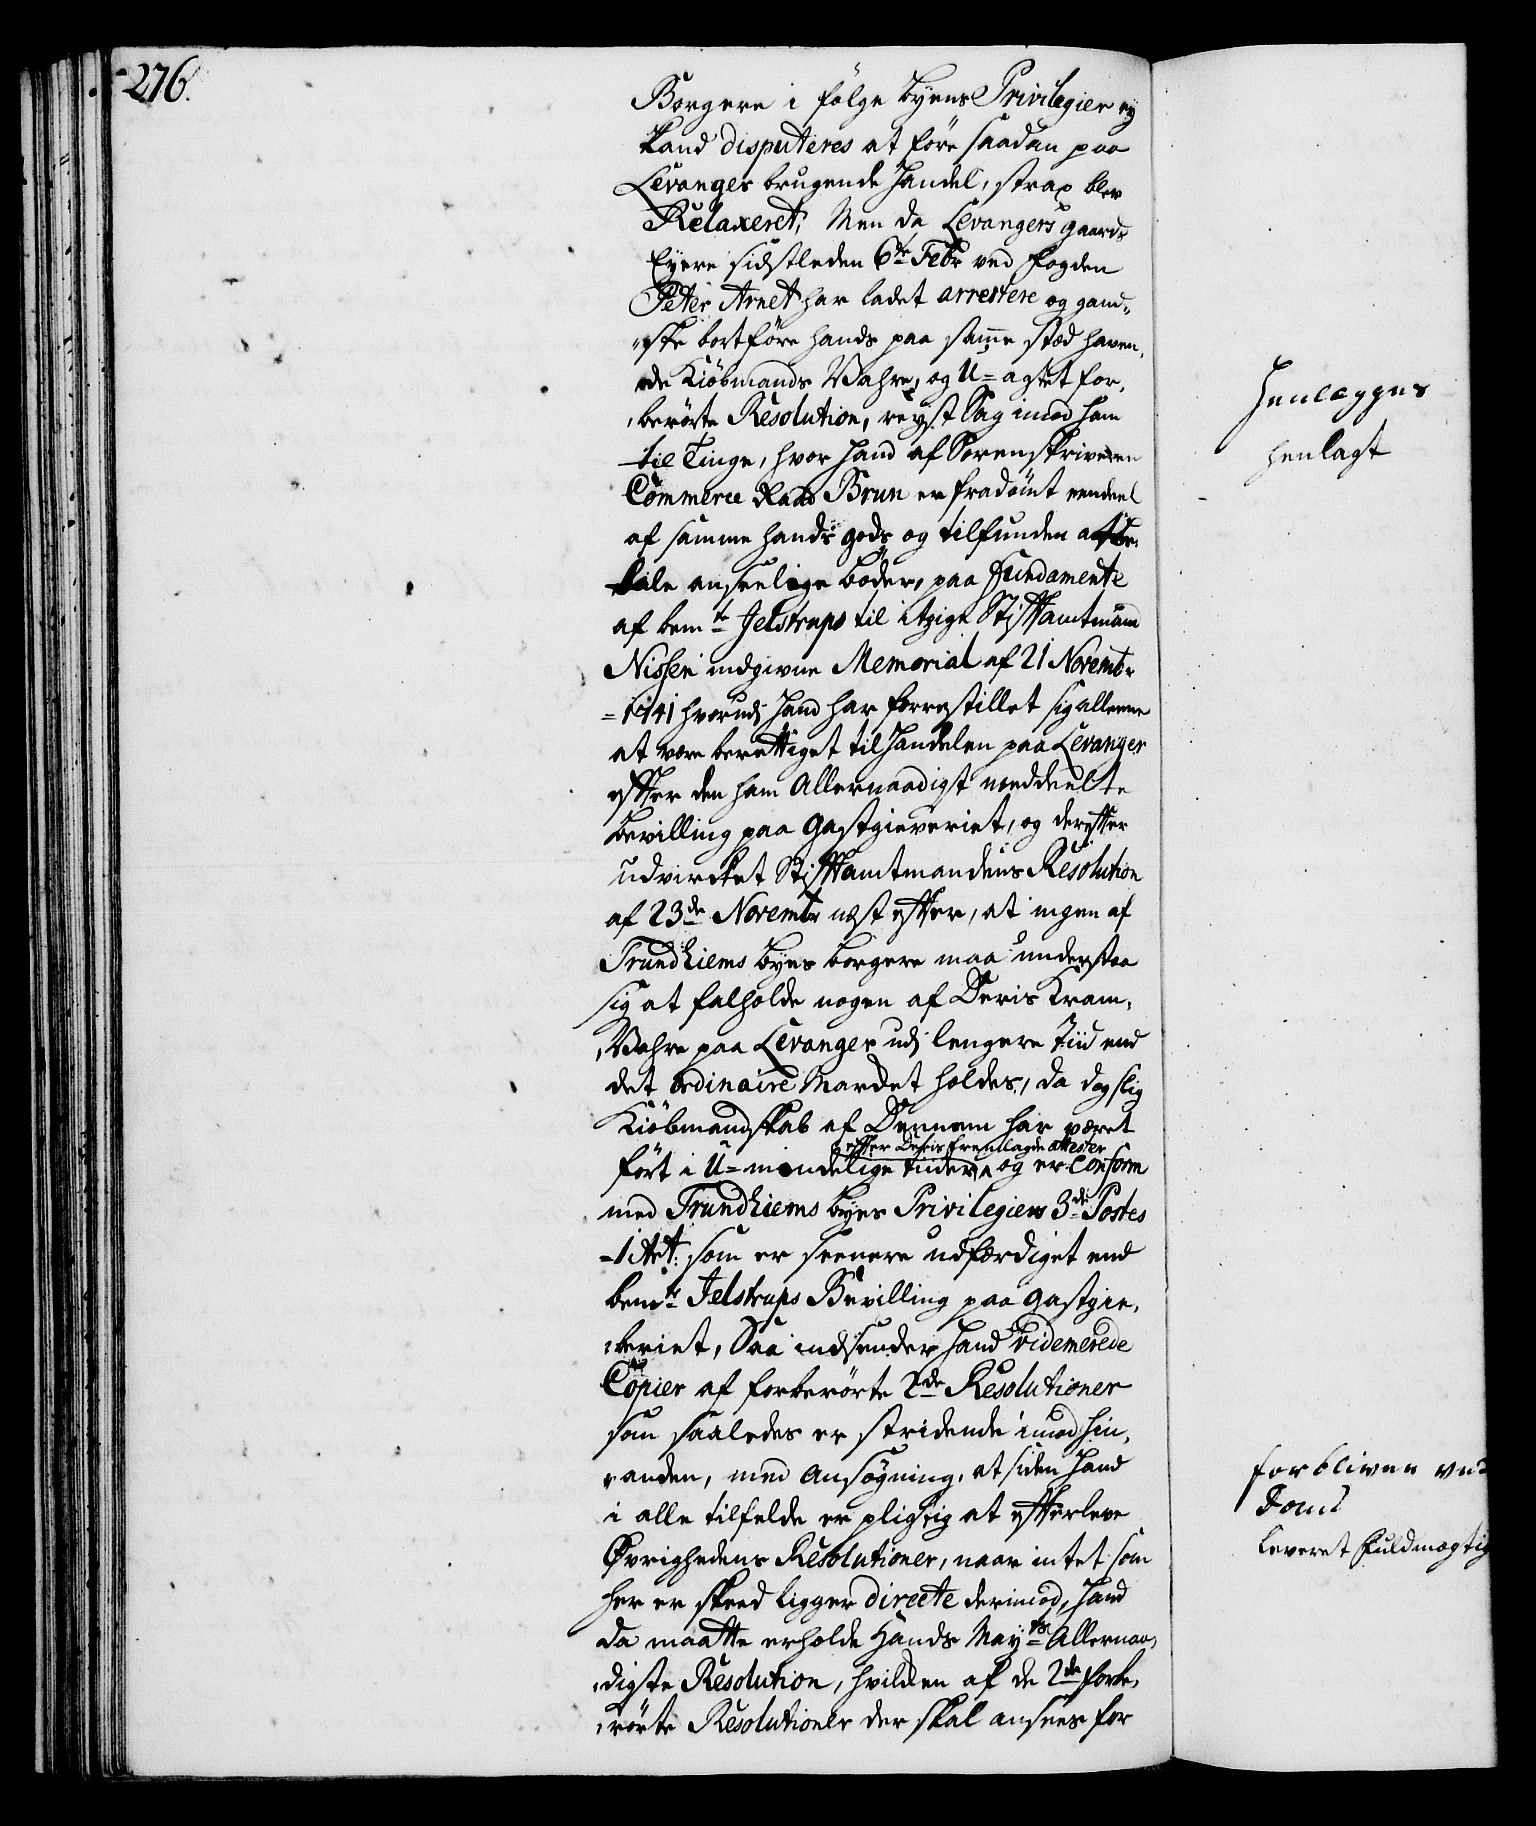 276.
Borgere i følge byens Privilegier ey
kand disputeres at føre saadan paa
Levanger brugende Handel, strax blev
Relaxeret; Men da Levangers gaards
Eyere sidstleden 6te Febr ved fogden
Peter Arnet har ladet arrestere og gand„
„ske bortføre hands paa samme stæd haven„
de Kiøbmands Wahre, og U=agtet for„
„berørte Resolution, reyst Sag imod ham
til Tinge, hvor hand af Sorenskriveren
Commerce Raad Brun er fradømt eendeel
af samme hands gods og tilfunden at be„
tale anseelige bøder, paa Fundamente
af bemte Jelstrups til Stiftamtmand
Nissen indgivne Memorial af 21 Novembr
1741 hvorudj hand har forrestillet sig alleene
at være berettiget til Handelen paa Levanger
efter den ham Allernaadigst meddeelte
bevilling paa gastgieveriet, og derefter
udvirket Stiftamtmandens Resolution
af 23de Novembr næst efter, at ingen af
Trundhiems byes borgere maa understaa
sig at falholde nogen af Deris Kram„
„Wahre paa Levanger udj lengere Tiid end
det ordinaire Marcket holdes, da dog slig
Kiøbmandskab af Dennem har været
efter Deris fremlagde attester
ført i U=mindelige tiider, ^ og er conform
med Trundhiems byes Privilegiers 3de Postes
1 Art: som er seenere udfærdiget end
bemte Jelstrups Bevilling paa gastgie„
„veriet, Saa indsender hand videmerede
Copier af forberørte 2de Resolutioner
som saaledes er stridende imod hin„
„anden, med Ansøgning, at siden hand
i alle tilfelde er pligtig at efterleve
Øvrighedens Resolutioner, naar intet som
her er skeed ligger directe derimod, hand
da maatte erholde Hands Mayts Allernaa„
„digste Resolution, hvilken af de 2de forbe„
„rørte Resolutioner der skal ansees for
Henlegges
henlagt
forbliver ved
Doms
leveret fuldmægtig